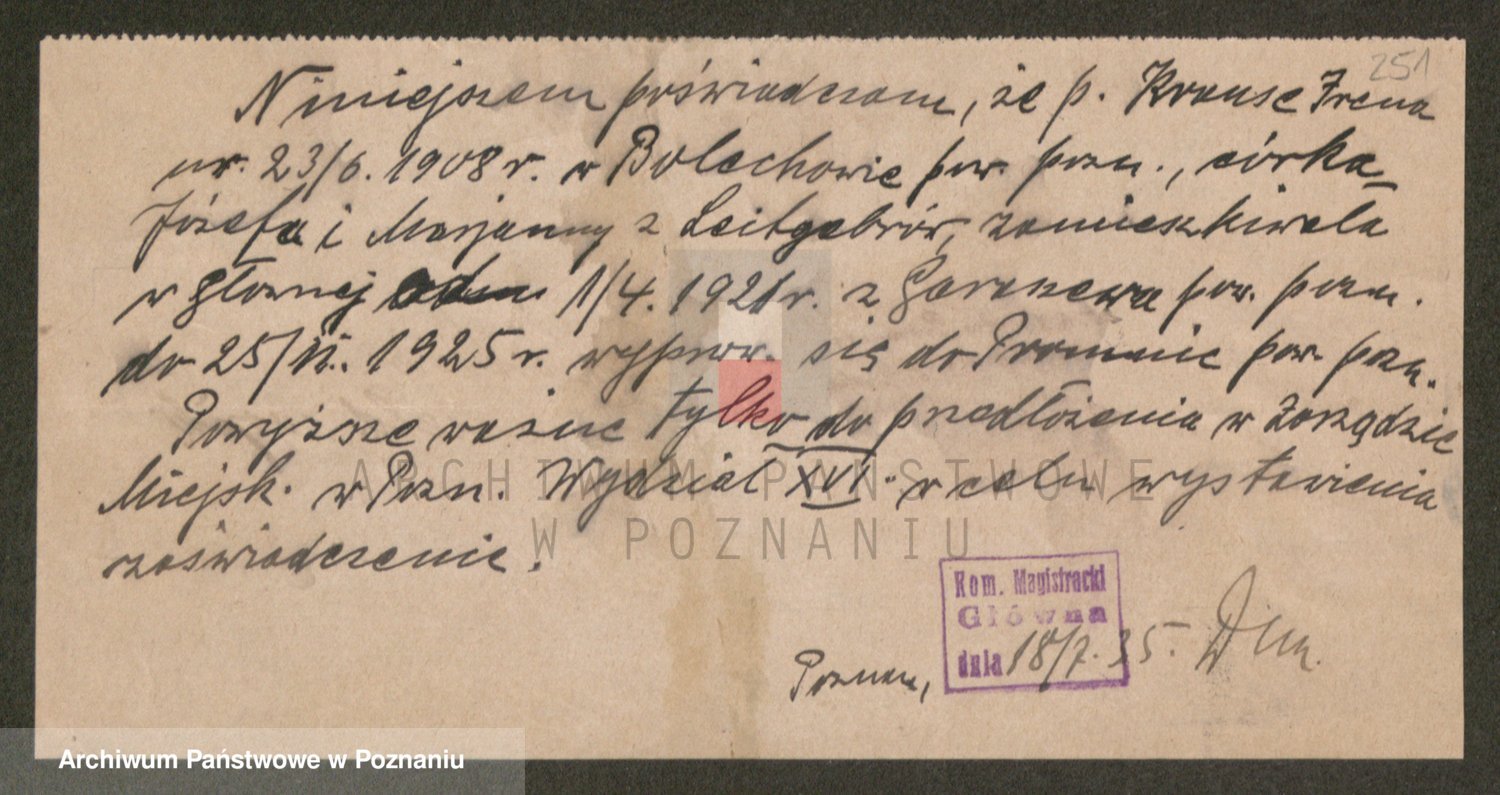 251
Niniejszem poświadczam, że p. Krause Irena
ur. 23/6. 1908 r. w Bolechowie pow. pozn., córka
Józefa i Marjanny z Leitgebrów, zamieszkiwała
w Głównej 1/4. 1921 r. z Garaszewa pow. pozn.
do 25/11. 1925 r. wyprow. się do Promnic pow. pozn.
Powyższe ważne tylko do przedłożenia w Zarządzie
Miejsk. w Pozn. Wydział XVI. w celu wystawienia
zaświadczenie.
Kom. Magistracki
Główna
dnia 18/7. 35.
Poznań,
ARCHIWUM PAŃSTWOWE
W POZNANIU
Archiwum Państwowe w Poznaniu